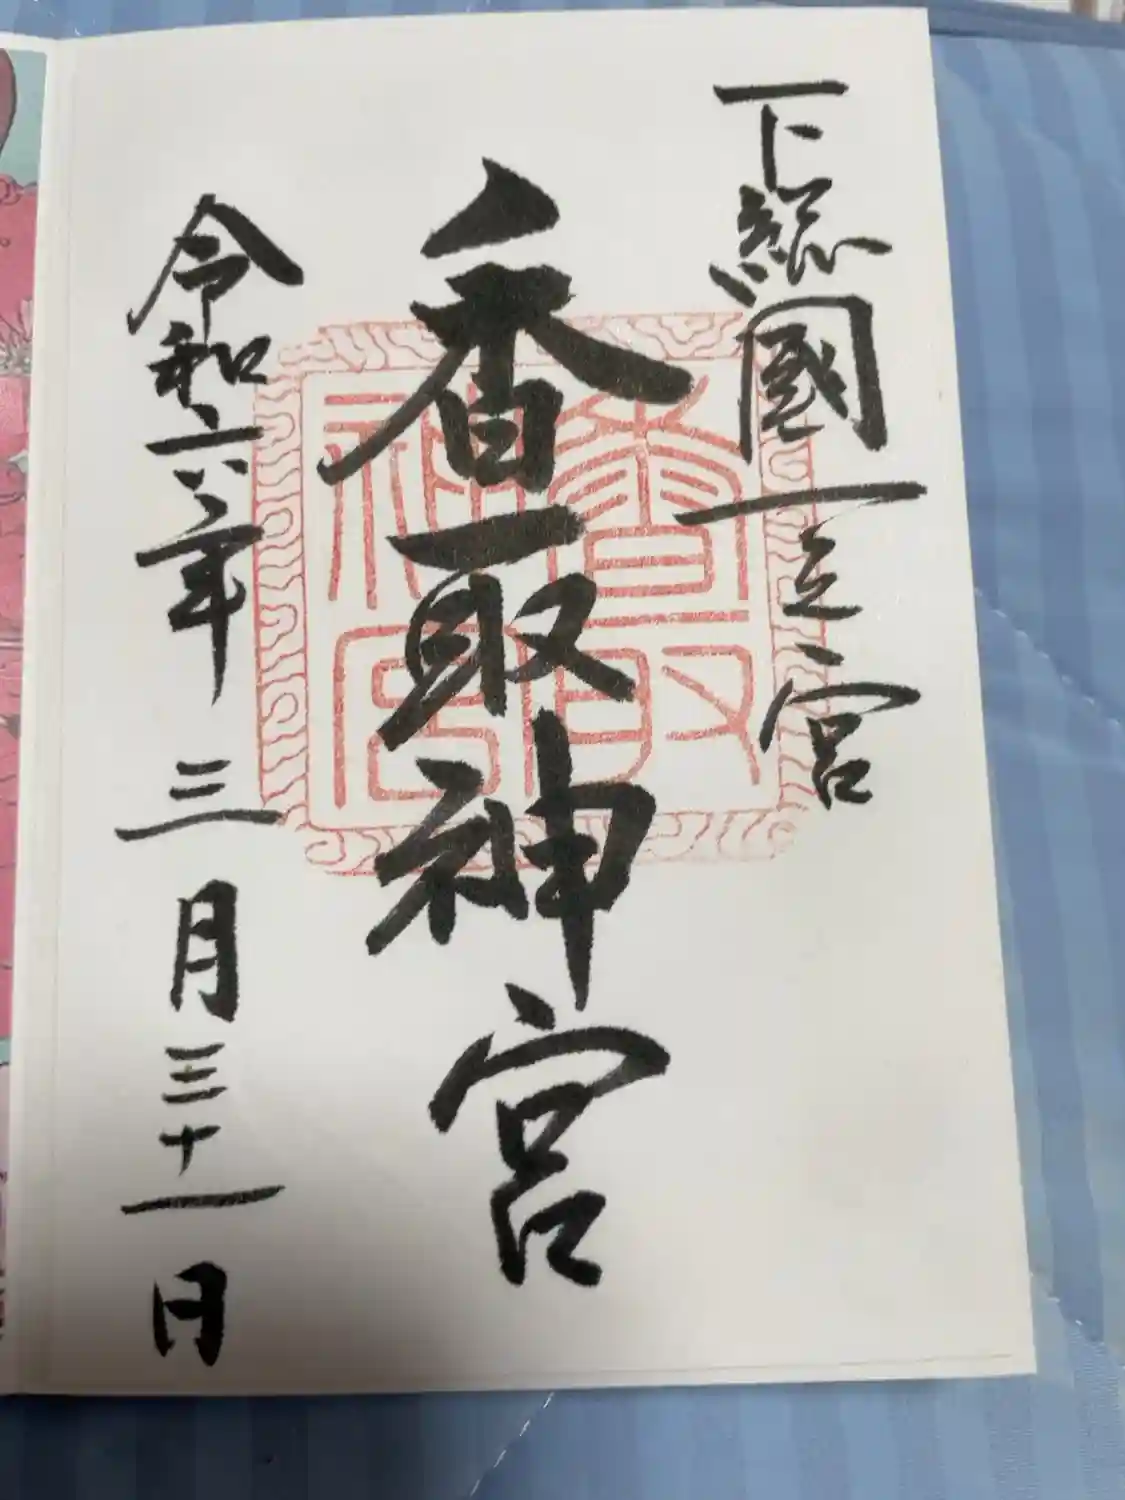 下総國一之宮
香取神宮
香取神宮
令和六年三月三十一日